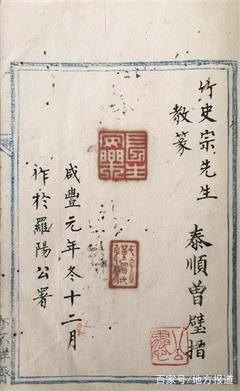 竹史宗先生
教篆
泰順曾璧搢
咸豐元年冬十二月
作於羅陽公署
百家号/地方报道